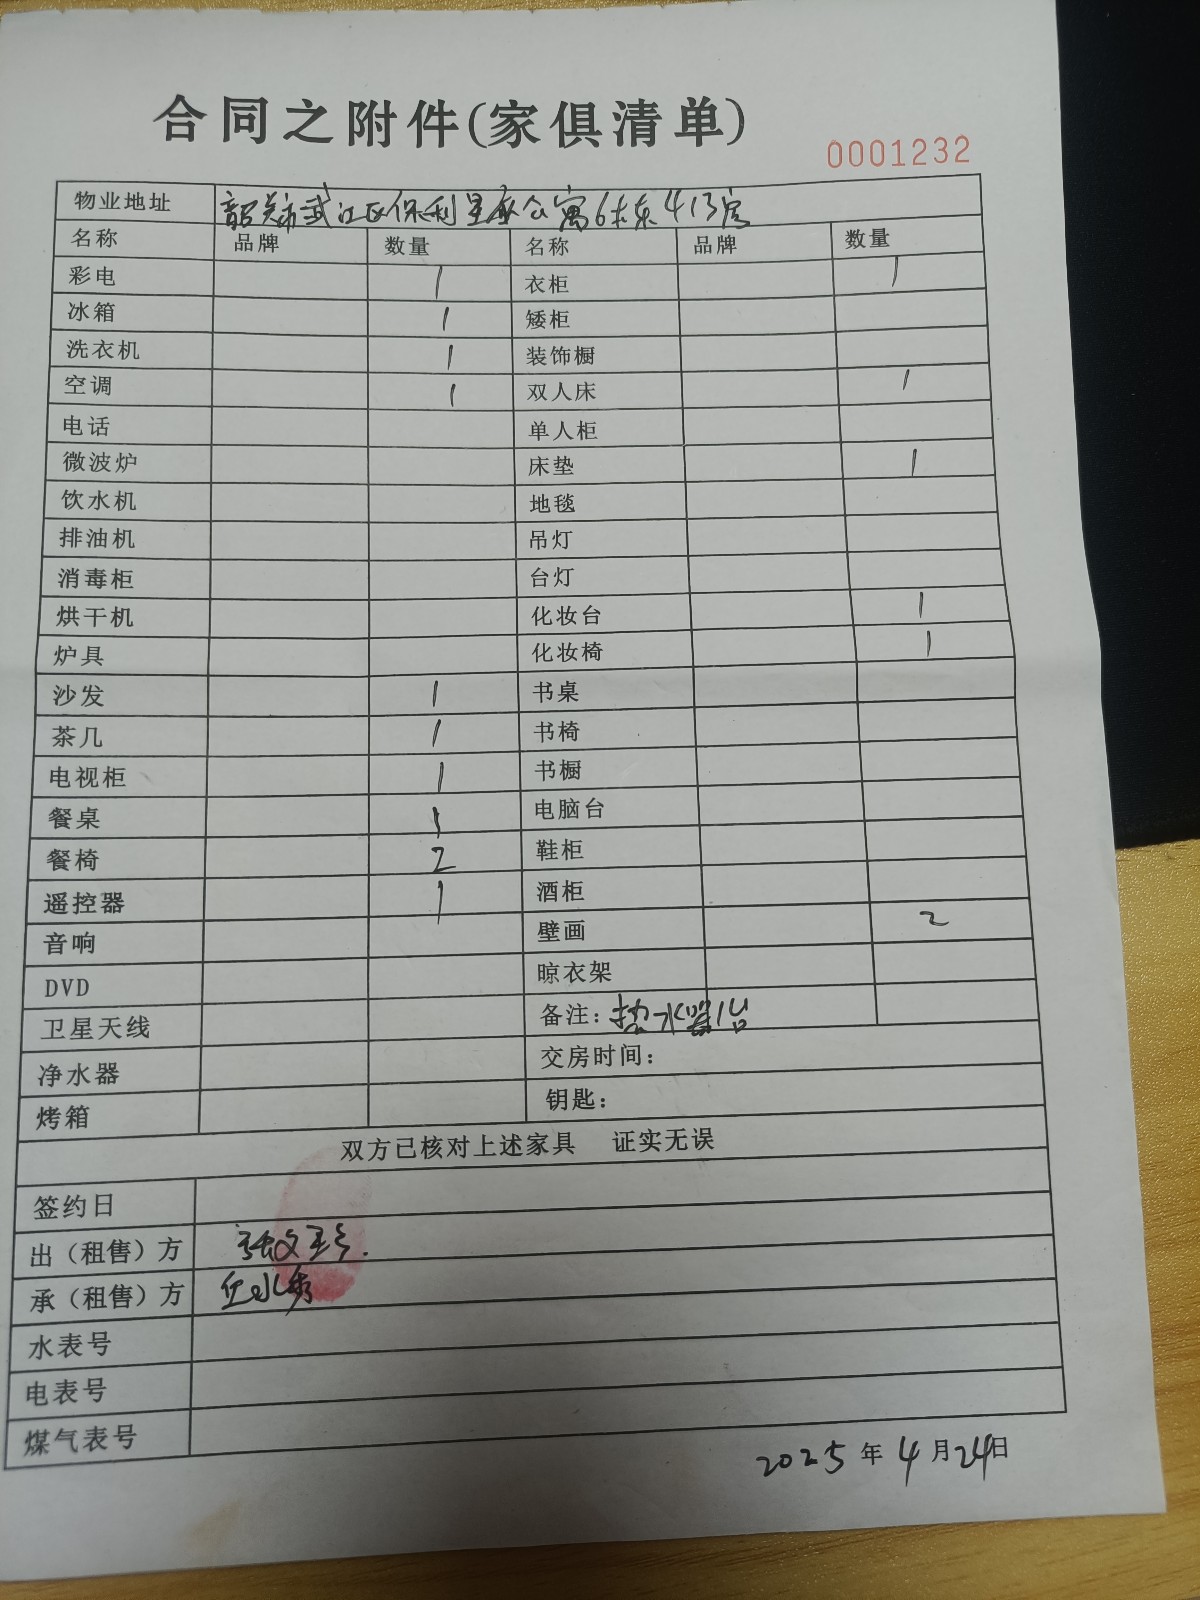 合同之附件(家俱清单)
0001232
物业地址 韶关市武江区保利星座公寓6栋东413房
名称 品牌 数量 名称 品牌 数量
彩电 1 衣柜 1
冰箱 1 矮柜
洗衣机 1 装饰橱
空调 1 双人床 1
电话 单人柜
微波炉 床垫 1
饮水机 地毯
排油机 吊灯
消毒柜 台灯
烘干机 化妆台 1
炉具 化妆椅 1
沙发 1 书桌
茶几 1 书椅
电视柜 1 书橱
餐桌 1 电脑台
餐椅 2 鞋柜
遥控器 1 酒柜
音响 壁画 2
DVD 晾衣架
卫星天线 备注：热水器1台
净水器 交房时间：
烤箱 钥匙：
双方已核对上述家具 证实无误
签约日
出（租售）方
承（租售）方
水表号
电表号
煤气表号
2025年4月24日